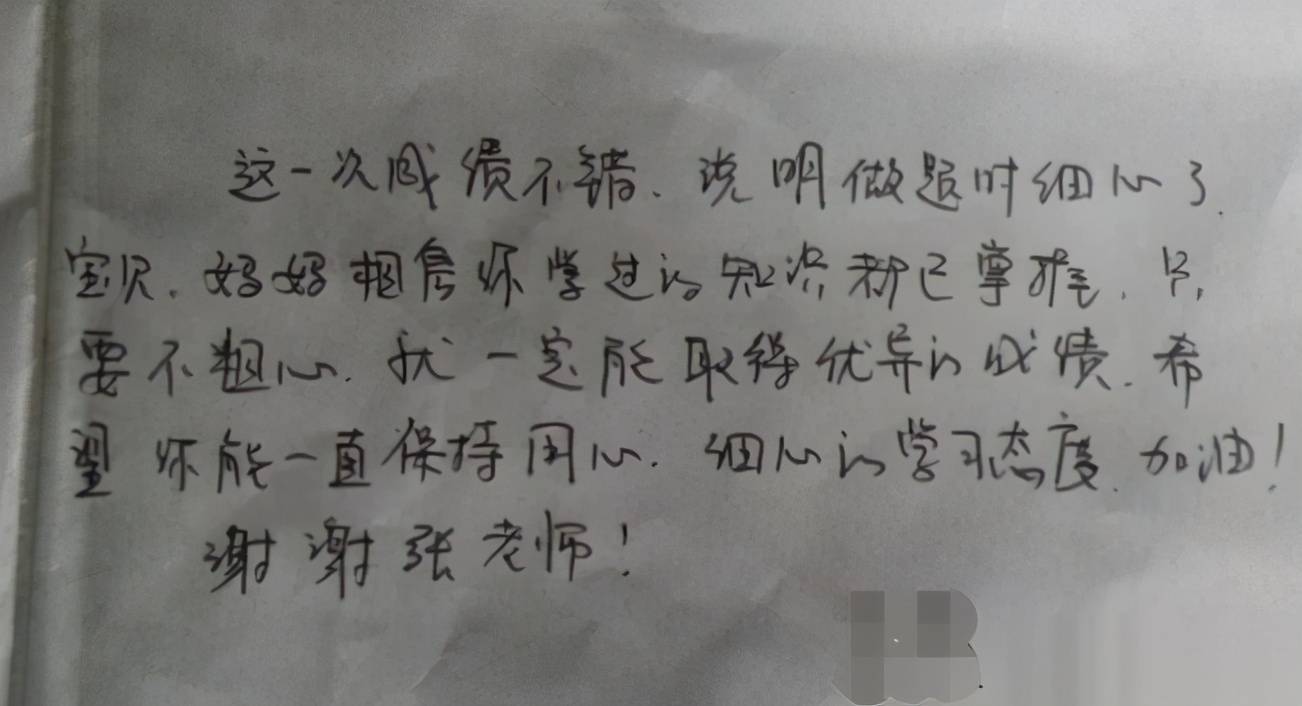 这一次成绩不错、说明做题时细心了.
宝贝、妈妈相信你学过的知识都已掌握、只
要不粗心、就一定能取得优异的成绩、希
望你能一直保持用心、细心的学习态度、加油！
谢谢张老师！